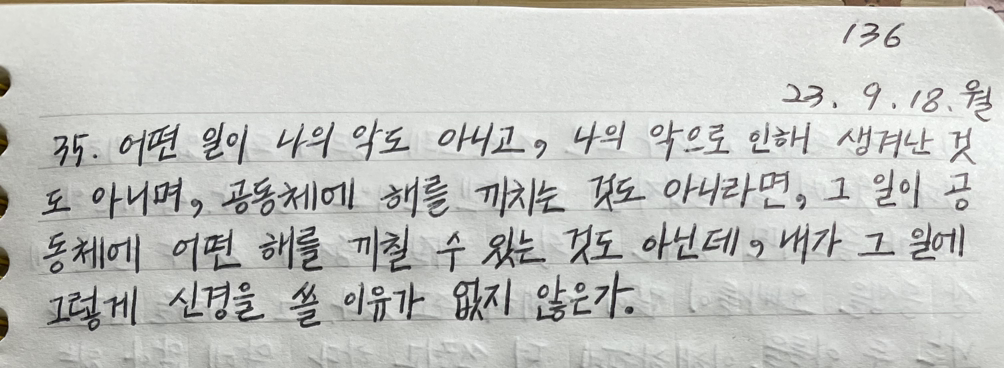 136
23. 9. 18. 월
35. 어떤 일이 나의 악도 아니고, 나의 악으로 인해 생겨난 것
도 아니며, 공동체에 해를 끼치는 것도 아니라면, 그 일이 공
동체에 어떤 해를 끼칠 수 있는 것도 아닌데, 내가 그 일에
그렇게 신경을 쓸 이유가 없지 않은가.